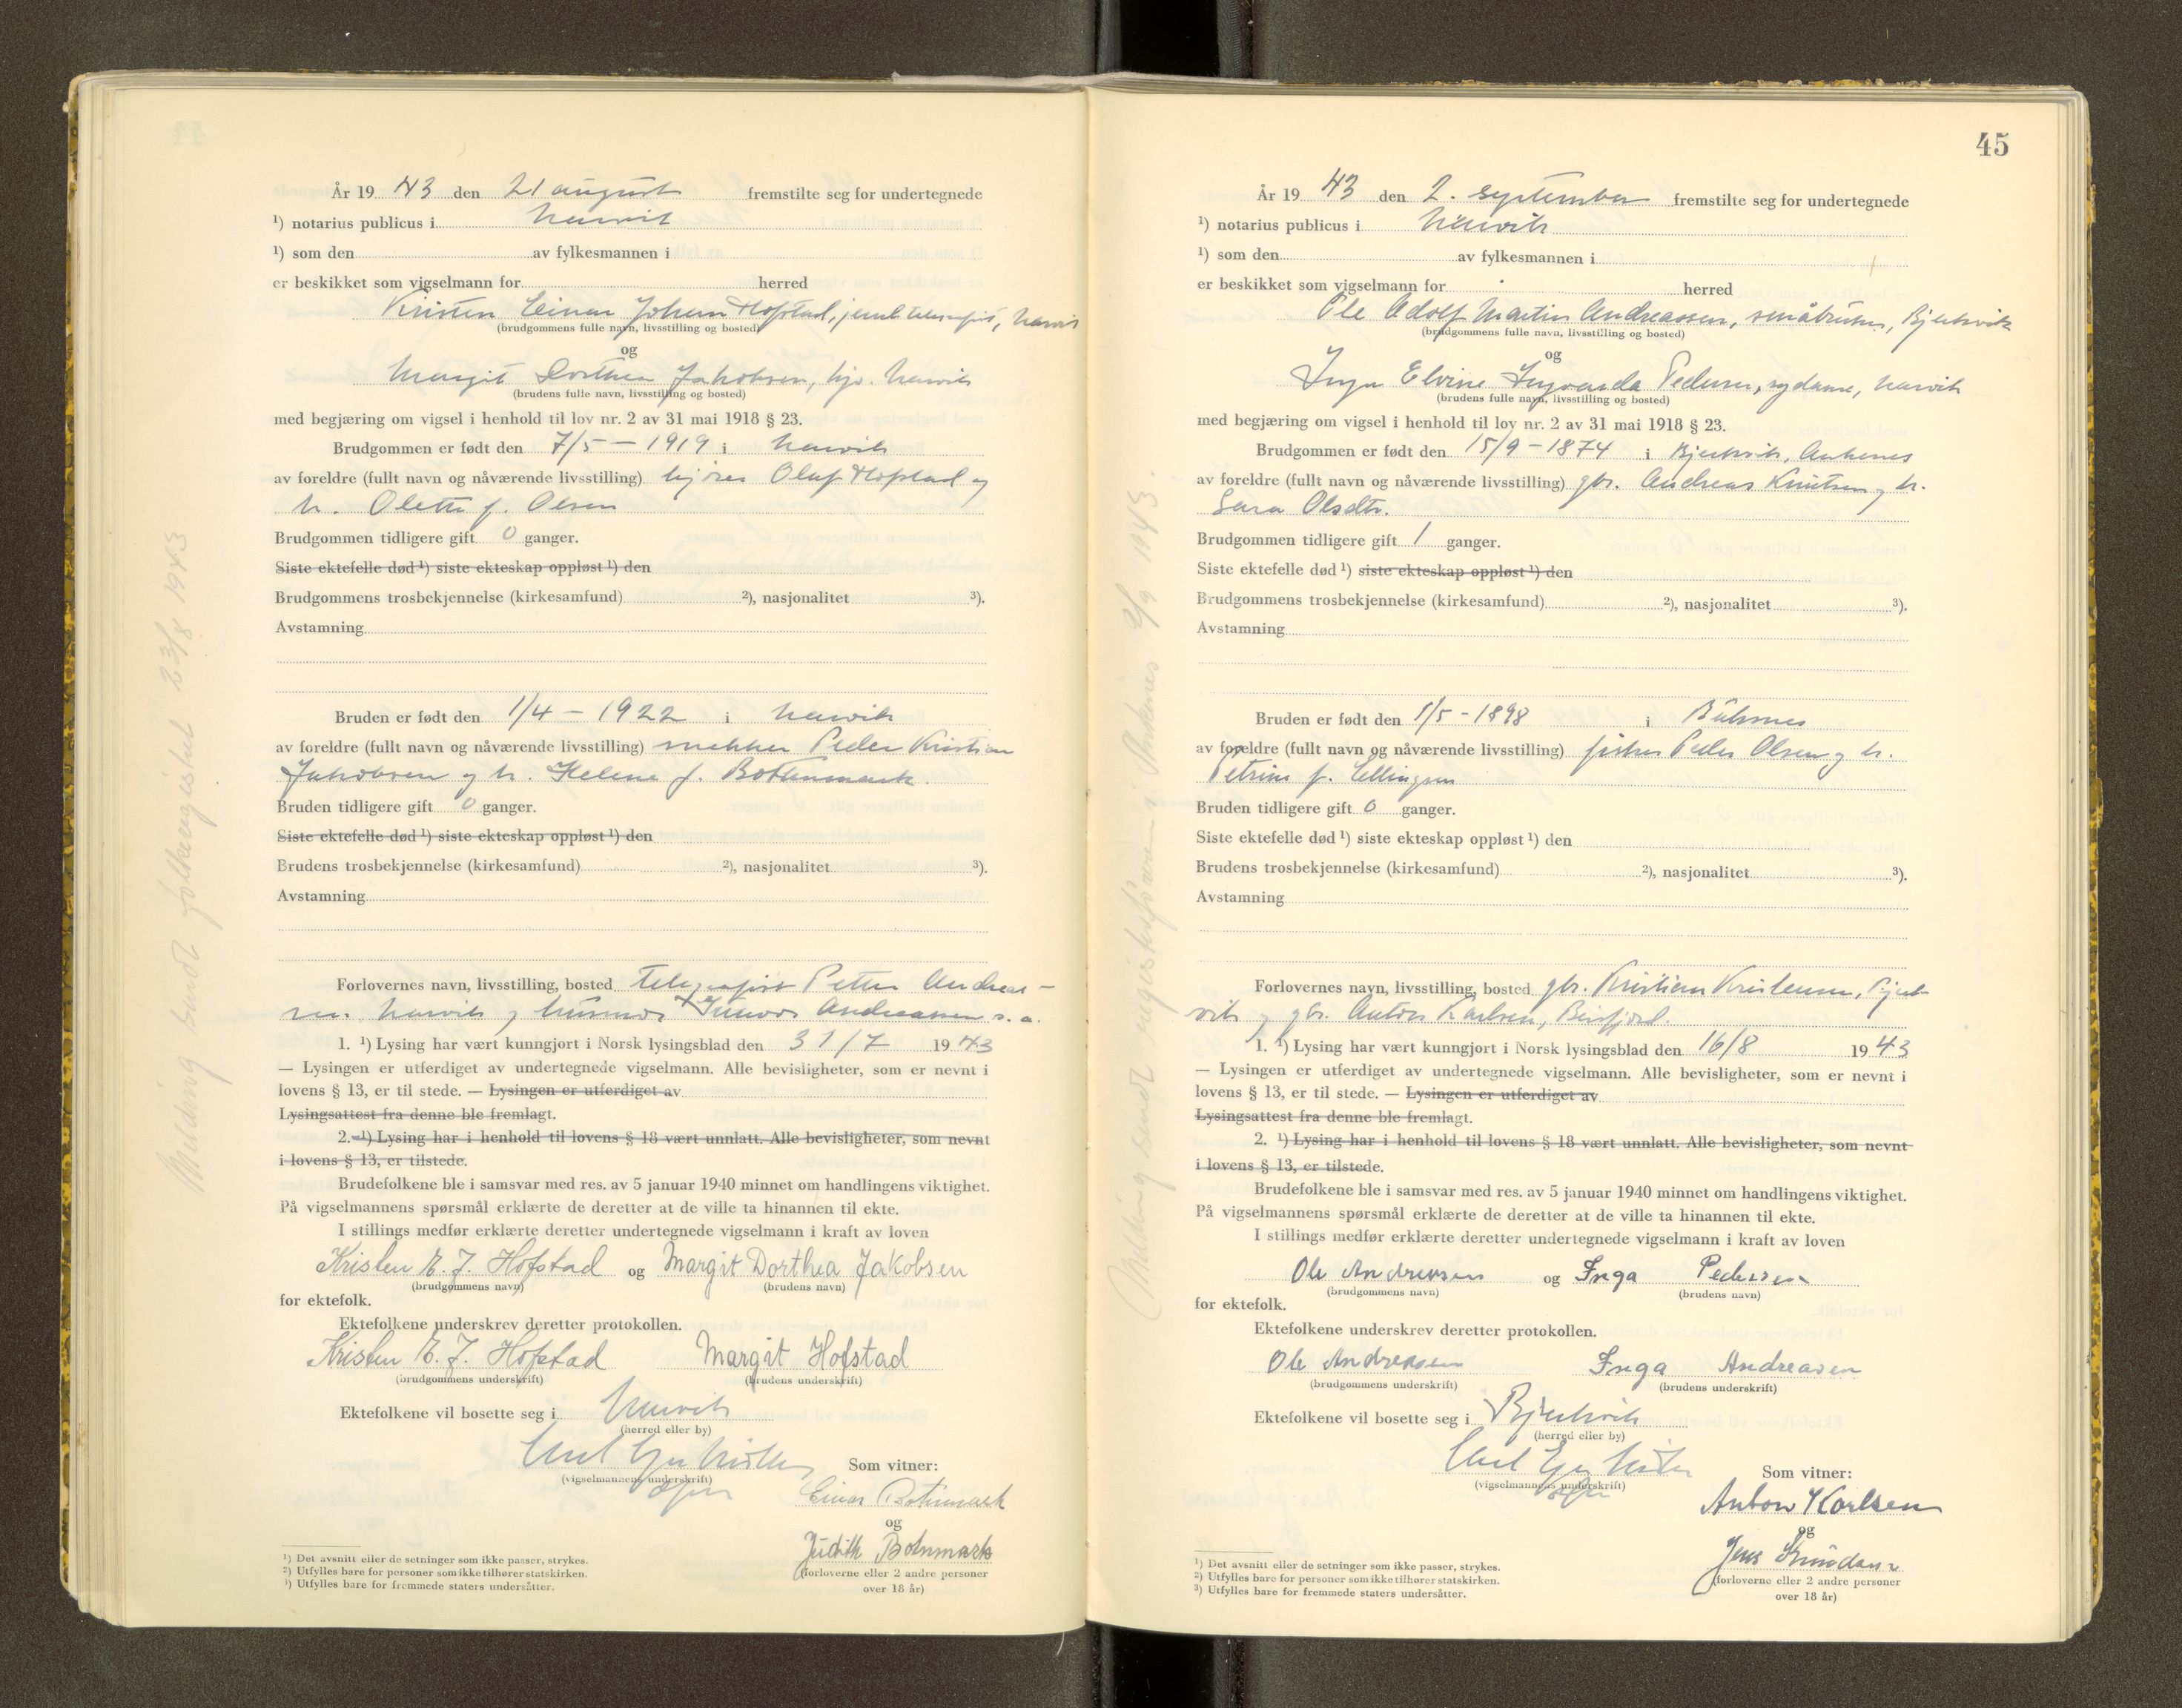 År 19 43 den 21 august fremstilte seg for undertegnede
¹) notarius publicus i Narvik
¹) som den av fylkesmannen i
er beskikket som vigselmann for herred
Kristen Einar Johan Hofstad, Narvik
(brudgommens fulle navn, livsstilling og bosted)
og
Margit Dorthea Jakobsen, hjv. Narvik
(brudens fulle navn, livsstilling og bosted)
med begjæring om vigsel i henhold til lov nr. 2 av 31 mai 1918 § 23.
Brudgommen er født den 7/5 – 1919 i Narvik
av foreldre (fullt navn og nåværende livsstilling) Olaf Hofstad og
h. Olette f. Olsen
Brudgommen tidligere gift 0 ganger.
Siste ektefelle død ¹) siste ekteskap oppløst ¹) den
Brudgommens trosbekjennelse (kirkesamfund) ²), nasjonalitet ³).
Avstamning
Bruden er født den 1/4 – 1922 i Narvik
av foreldre (fullt navn og nåværende livsstilling) snekker Peder Kristian
Jakobsen og h. Helene f. Bottenmark.
Bruden tidligere gift 0 ganger.
Siste ektefelle død ¹) siste ekteskap oppløst ¹) den
Brudens trosbekjennelse (kirkesamfund) ²), nasjonalitet ³).
Avstamning
Forlovernes navn, livsstilling, bosted telegrafist Petter Andreas-
sen. Narvik og husmor Andreassen s. a.
1. ¹) Lysing har vært kunngjort i Norsk lysingsblad den 31/7 19 43
— Lysingen er utferdiget av undertegnede vigselmann. Alle bevisligheter, som er nevnt i
lovens § 13, er til stede. — Lysingen er utferdiget av
Lysingsattest fra denne ble fremlagt.
2. ¹) Lysing har i henhold til lovens § 18 vært unnlatt. Alle bevisligheter, som nevnt
i lovens § 13, er tilstede.
Brudefolkene ble i samsvar med res. av 5 januar 1940 minnet om handlingens viktighet.
På vigselmannens spørsmål erklærte de deretter at de ville ta hinannen til ekte.
I stillings medfør erklærte deretter undertegnede vigselmann i kraft av loven
Kristen E. J. Hofstad og Margit Dorthea Jakobsen
(brudgommens navn) (brudens navn)
for ektefolk.
Ektefolkene underskrev deretter protokollen.
Kristen E. J. Hofstad Margit Hofstad
(brudgommens underskrift) (brudens underskrift)
Ektefolkene vil bosette seg i Narvik
(herred eller by)
(vigselmannens underskrift) Som vitner:
Einar Botnmark
og
Judith Botnmark
(forloverne eller 2 andre personer
over 18 år)
¹) Det avsnitt eller de setninger som ikke passer, strykes.
²) Utfylles bare for personer som ikke tilhører statskirken.
³) Utfylles bare for fremmede staters undersåtter.
Melding sendt folkeregistret 23/8 1943
45
År 19 43 den 2. september fremstilte seg for undertegnede
¹) notarius publicus i Narvik
¹) som den av fylkesmannen i
er beskikket som vigselmann for herred
Ole Adolf Martin Andreassen, småbruker, Bjerkvik
(brudgommens fulle navn, livsstilling og bosted)
og
Inga Elvine Ingvarda Pedersen, sydame, Narvik
(brudens fulle navn, livsstilling og bosted)
med begjæring om vigsel i henhold til lov nr. 2 av 31 mai 1918 § 23.
Brudgommen er født den 15/9 – 1874 i Bjerkvik, Ankenes
av foreldre (fullt navn og nåværende livsstilling) gbr. Andreas Knutsen og h.
Sara Olsdtr.
Brudgommen tidligere gift 1 ganger.
Siste ektefelle død ¹) siste ekteskap oppløst ¹) den
Brudgommens trosbekjennelse (kirkesamfund) ²), nasjonalitet ³).
Avstamning
Bruden er født den 1/5 – 1898 i Buksnes
av foreldre (fullt navn og nåværende livsstilling) fisker Peder Olsen og h.
Petrine f. Ellingsen
Bruden tidligere gift 0 ganger.
Siste ektefelle død ¹) siste ekteskap oppløst ¹) den
Brudens trosbekjennelse (kirkesamfund) ²), nasjonalitet ³).
Avstamning
Forlovernes navn, livsstilling, bosted gbr. Kristian Kristensen, Bjerk
vik og gbr. Anton Karlsen, Beisfjord.
1. ¹) Lysing har vært kunngjort i Norsk lysingsblad den 16/8 19 43
— Lysingen er utferdiget av undertegnede vigselmann. Alle bevisligheter, som er nevnt i
lovens § 13, er til stede. — Lysingen er utferdiget av
Lysingsattest fra denne ble fremlagt.
2. ¹) Lysing har i henhold til lovens § 18 vært unnlatt. Alle bevisligheter, som nevnt
i lovens § 13, er tilstede.
Brudefolkene ble i samsvar med res. av 5 januar 1940 minnet om handlingens viktighet.
På vigselmannens spørsmål erklærte de deretter at de ville ta hinannen til ekte.
I stillings medfør erklærte deretter undertegnede vigselmann i kraft av loven
Ole Andreasen og Inga Pedersen
(brudgommens navn) (brudens navn)
for ektefolk.
Ektefolkene underskrev deretter protokollen.
Ole Andreasen Inga Andreasen
(brudgommens underskrift) (brudens underskrift)
Ektefolkene vil bosette seg i Bjerkvik
(herred eller by)
(vigselmannens underskrift) Som vitner:
Anton Karlsen
og
(forloverne eller 2 andre personer
over 18 år)
¹) Det avsnitt eller de setninger som ikke passer, strykes.
²) Utfylles bare for personer som ikke tilhører statskirken.
³) Utfylles bare for fremmede staters undersåtter.
Melding sendt registerføreren i Ankenes 2/9 1943.